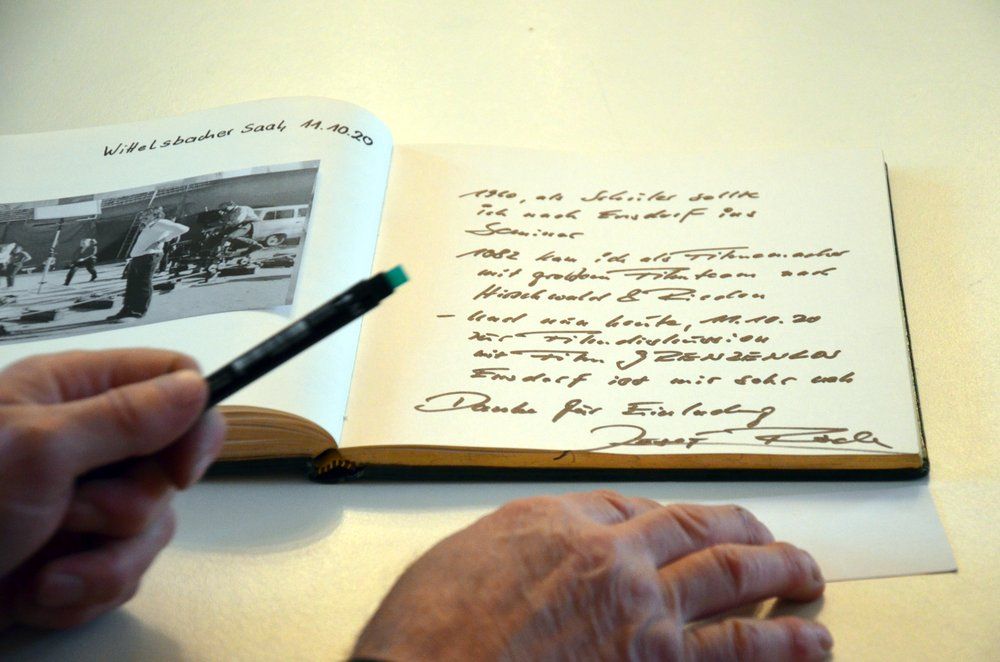 Wittelsbacher Saal, 11.10.20
1960, als Schüler sollte
ich nach Ensdorf ins
Seminar
1982 kam ich als Filmemacher
mit großem Filmteam nach
Hirschwald & Rieden
- Und nun heute, 11.10.20
zur Filmdiskussion
mit Film GRENZENLOS
Ensdorf ist mir sehr nah
Danke für Einladung
Josef